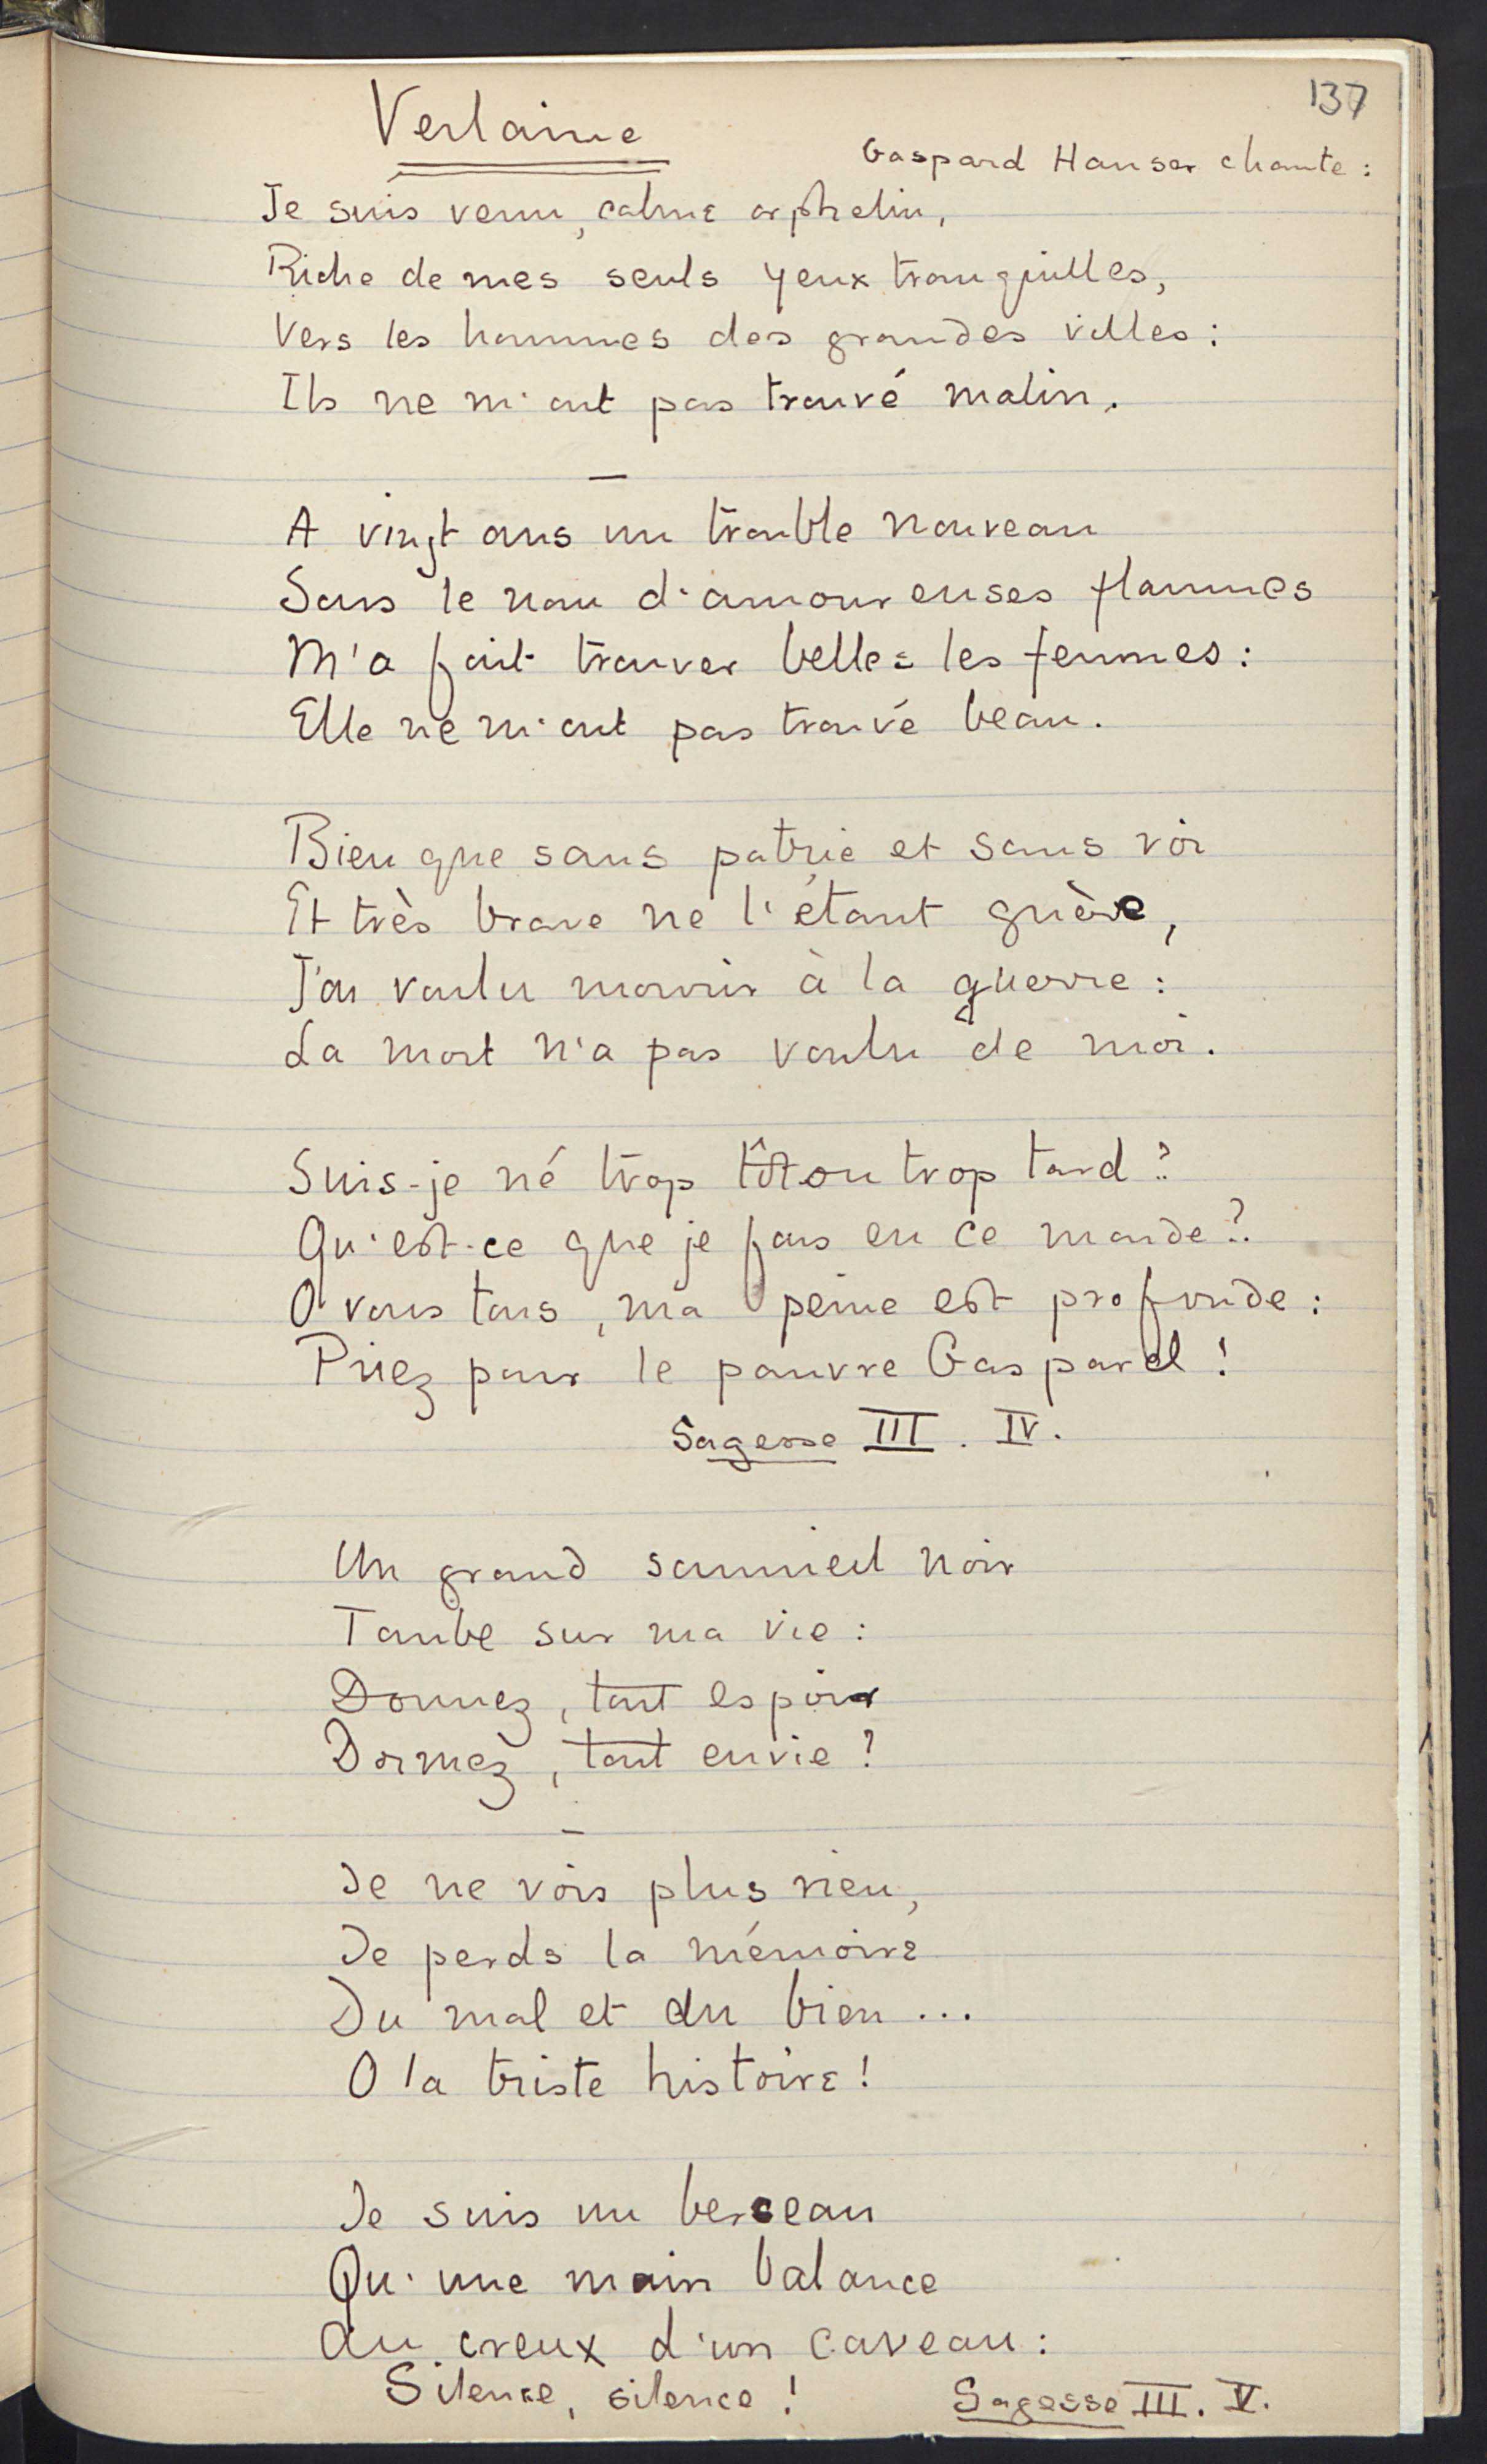 137
Verlaine
Gaspard Hauser chante :
Je suis venu, calme orphelin,
Riche de mes seuls yeux tranquilles,
Vers les hommes des grandes villes :
Ils ne m'ont pas trouvé malin.
—
A vingt ans un trouble nouveau
Sous le nom d'amoureuses flammes
M'a fait trouver belles les femmes :
Elle ne m'ont pas trouvé beau.
Bien que sans patrie et sans roi
Et très brave ne l'étant guère,
J'ai voulu mourir à la guerre :
La mort n'a pas voulu de moi.
Suis-je né trop tôt ou trop tard ?
Qu'est-ce que je fais en ce monde ?
O vous tous, ma peine est profonde :
Priez pour le pauvre Gaspard !
Sagesse III. IV.
Un grand sommeil noir
Tombe sur ma vie :
Dormez, tout espoir
Dormez, tout envie ?
—
Je ne vois plus rien,
Je perds la mémoire
Du mal et du bien ...
O la triste histoire !
Je suis un berceau
Qu'une main balance
Au creux d'un caveau :
Silence, silence !
Sagesse III. V.